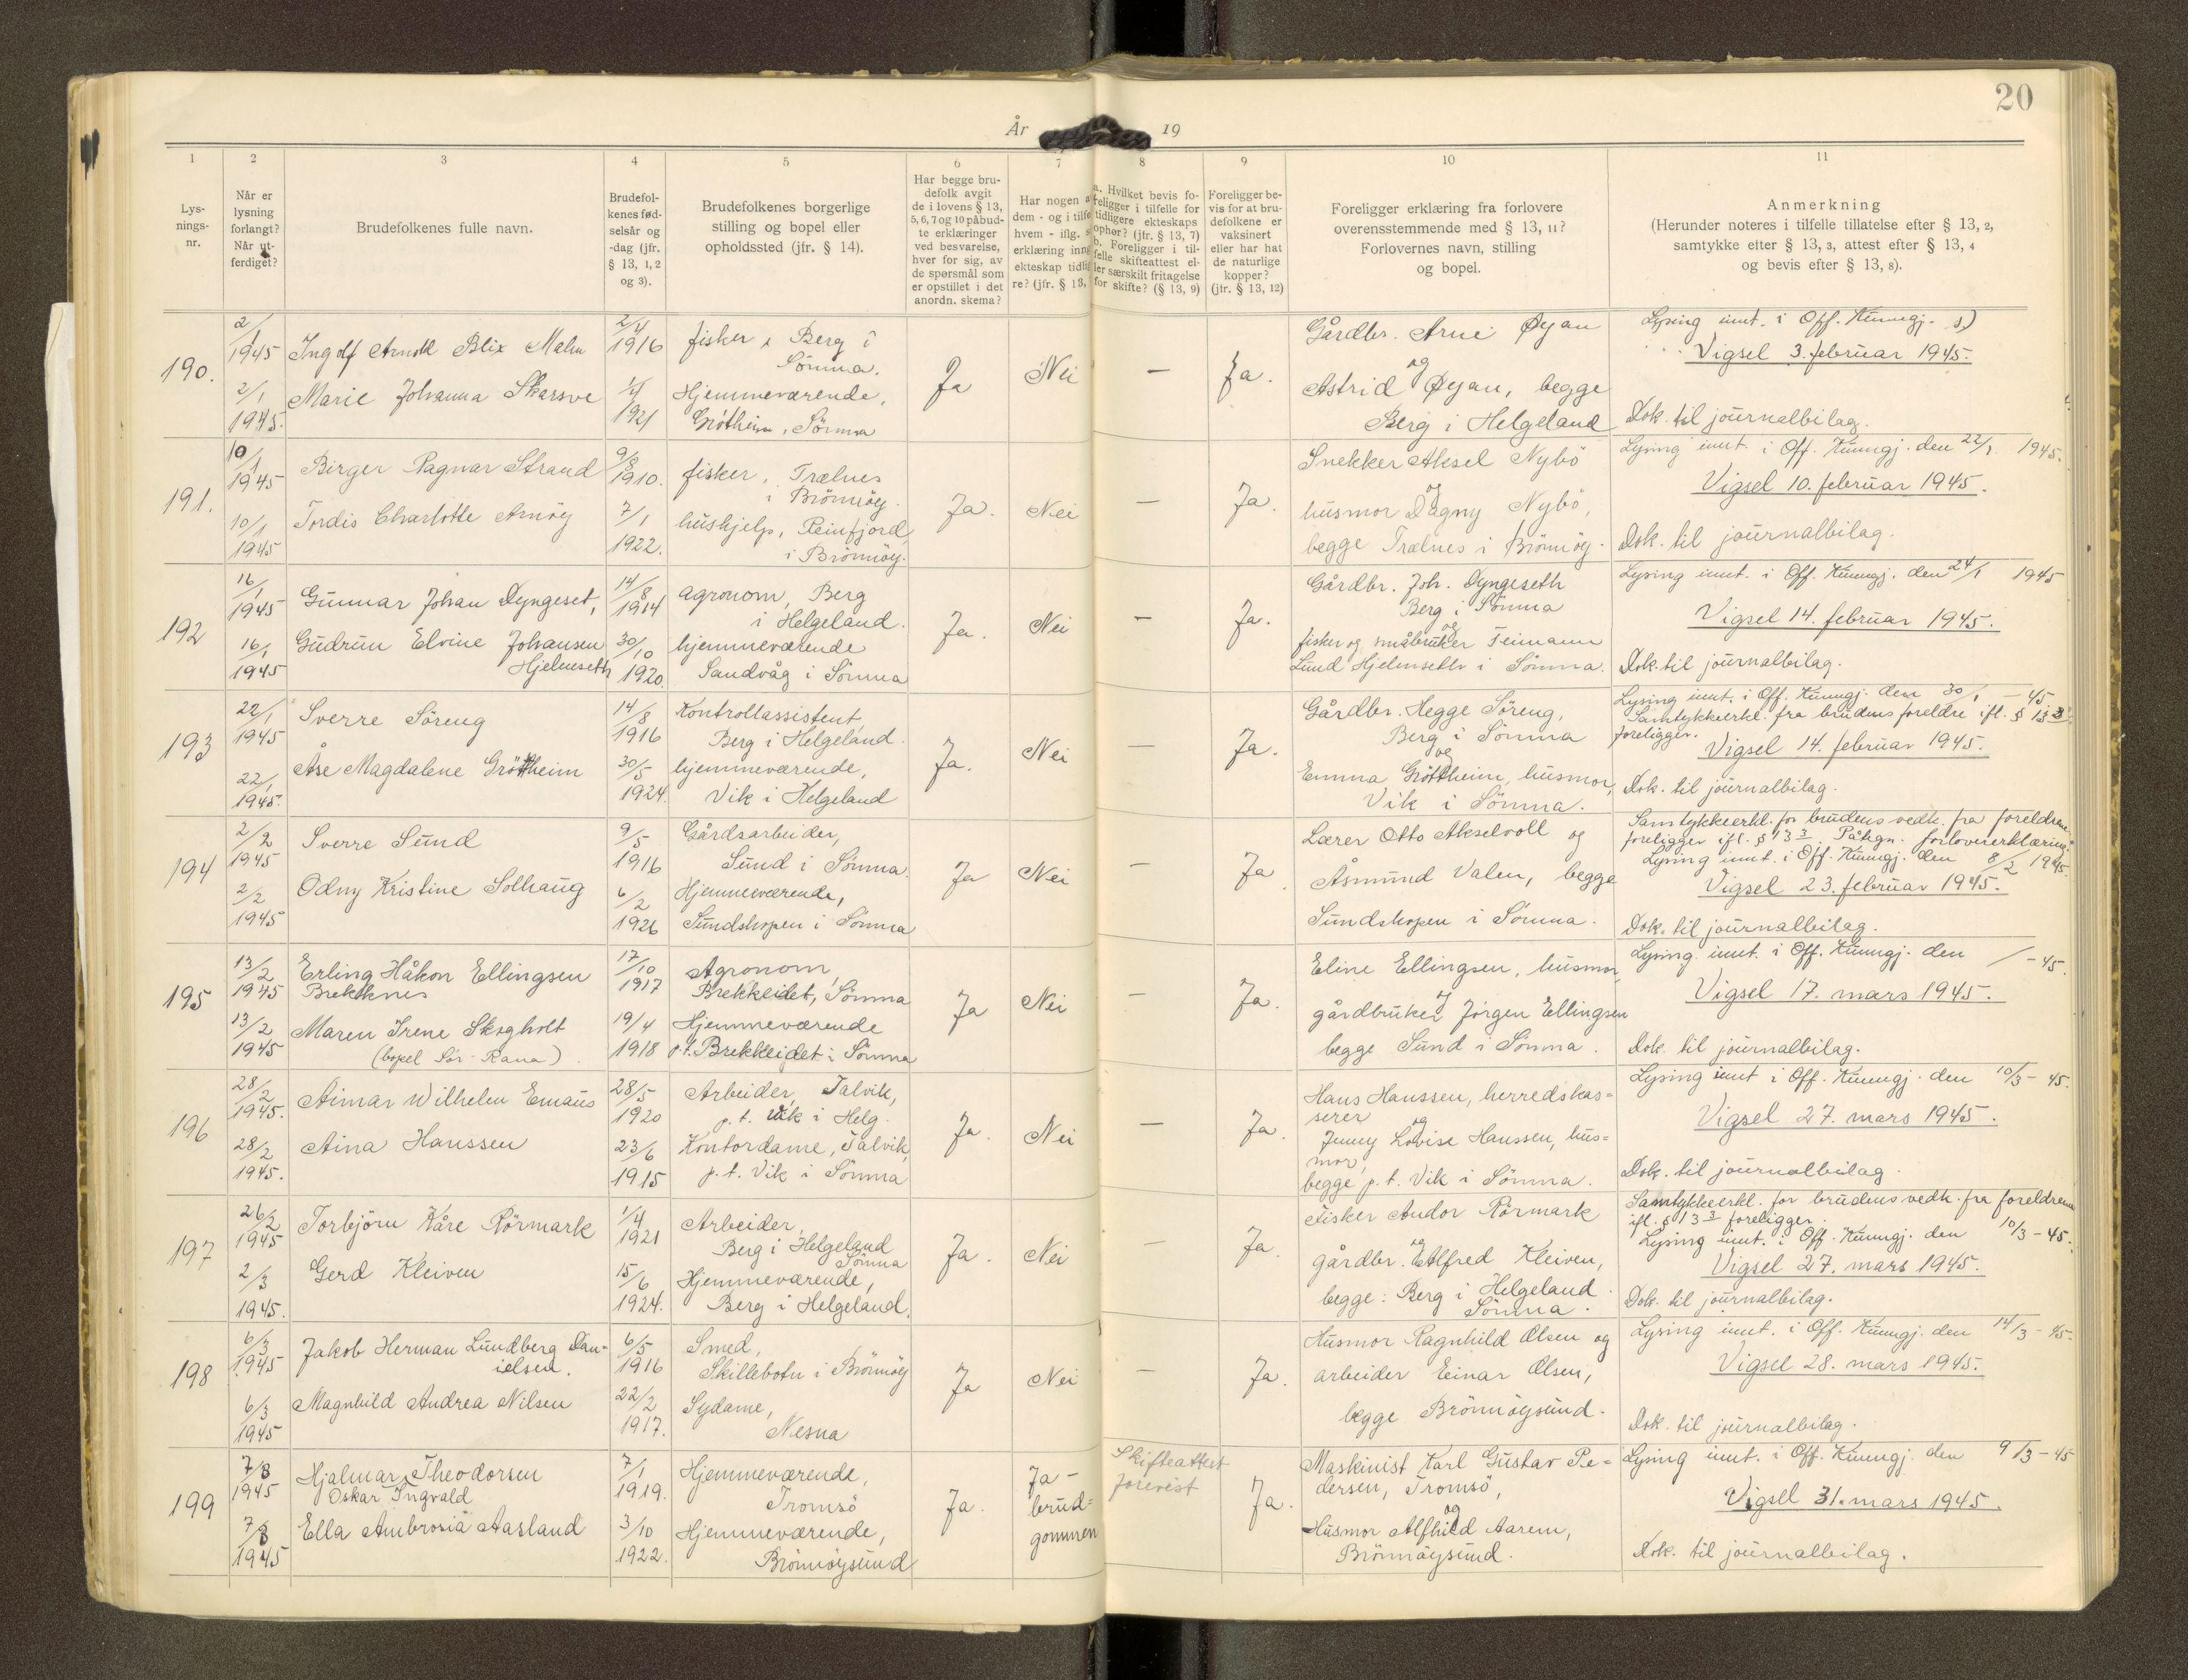 20
År 19
1 2 3 4 5 6 7 8 9 10 11
Lys-
nings-
nr.
Når er
lysning
forlangt?
Når ut-
ferdiget?
Brudefolkenes fulle navn.
Brudefol-
kenes fød-
selsår og
-dag (jfr.
§ 13, 1, 2
og 3).
Brudefolkenes borgerlige
stilling og bopel eller
opholdssted (jfr. § 14).
Har begge bru-
defolk avgit
de i lovens § 13,
5, 6, 7 og 10 påbud-
te erklæringer
ved besvarelse,
hver for sig, av
de spørsmål som
er opstillet i det
anordn. skema?
Har nogen a
dem - og i tilfe
hvem - iflg. s
erklæring inng
ekteskap tidlig
re? (jfr. § 13,
a. Hvilket bevis fo-
religger i tilfelle for
tidligere ekteskaps
ophør? (jfr. § 13, 7)
b. Foreligger i til-
felle skifteattest el-
ler særskilt fritagelse
for skifte? (§ 13, 9)
Foreligger be-
vis for at bru-
defolkene er
vaksinert
eller har hat
de naturlige
kopper?
(jfr. § 13, 12)
Foreligger erklæring fra forlovere
overensstemmende med § 13, 11?
Forlovernes navn, stilling
og bopel.
Anmerkning
(Herunder noteres i tilfelle tillatelse efter § 13, 2,
samtykke efter § 13, 3, attest efter § 13, 4
og bevis efter § 13, 8).
190.
2/1
1945
2/1
1945.
Ingolf Arnold Blix Malm
Marie Johanna Skarsve
2/4
1916
1921
fisker, Berg i
Sömna.
Hjemmeværende,
Gröttheim, Sömna
Ja
Nei
—
Ja.
Gårdbr. Arne Øyan
og
Astrid Øyan, begge
Berg i Helgeland
Lysing innt. i Off. Kunngj.
Vigsel 3. februar 1945.
Dok. til journalbilag.
191.
10/1
1945
10/1
1945
Birger Ragnar Strand
Tordis Charlotte Arnöy
9/8
1910.
7/1
1922.
fisker, Trælnes
i Brönnöy.
hushjelp, Reinfjord,
i Brönnöy.
Ja.
Nei
—
Ja.
Snekker Aksel Nybö
og
husmor Dagny Nybö,
begge Trælnes i Brönnöy.
Lysing innt. i Off. Kunngj. den 22/1 1945.
Vigsel 10. februar 1945.
Dok. til journalbilag.
192
16/1
1945
16/1
1945
Gunnar Johan Dyngeset,
Gudrun Elvine Johansen
Hjelmseth
14/8
1914
30/10
1920.
agronom, Berg
i Helgeland.
hjemmeværende
Sandvåg i Sömna
Ja.
Nei
—
Ja.
Gårdbr. Joh. Dyngeseth
Berg i Sömna
og
fisker og småbruker Teimann
Lund Hjelmseth i Sömna.
Lysing innt. i Off. Kunngj. den 24/1 1945
Vigsel 14. februar 1945.
Dok. til journalbilag.
193
22/1
1945
22/1
1945.
Sverre Söreng
Åse Magdalene Gröttheim
14/8
1916
30/5
1924.
Kontrollassistent,
Berg i Helgeland.
hjemmeværende,
Vik i Helgeland
Ja.
Nei
—
Ja.
Gårdbr. Hegge Söreng,
Berg i Sömna
og
Emma Gröttheim, husmor,
Vik i Sömna.
Lysing innt. i Off. Kunngj. den 30/1 - 45
Samtykkeerkl. fra brudens foreldre ifl. § 13 3
foreligger.
Vigsel 14. februar 1945.
Dok. til journalbilag.
194
2/2
1945
2/2
1945
Sverre Sund
Odny Kristine Solhaug
9/5
1916
6/2
1926
Gårdsarbeider,
Sund i Sömna.
Hjemmeværende,
Sundshopen i Sömna
Ja
Nei
—
Ja.
Lærer Otto Akselvoll og
Åsmund Valen, begge
Sundshopen i Sömna.
Samtykkeerkl. for brudens vedk. fra foreldrene
foreligger ifl. § 13 3. Påtegn. forlovererklæring.
Lysing innt. i Off. Kunngj. den 8/2 1945.
Vigsel 23. februar 1945.
Dok. til journalbilag.
195
13/2
1945
13/2
1945
Erling Håkon Ellingsen
Brekknes
Maren Irene Skogholt
(bopel Sør-Rana).
17/10
1917
19/4
1918
Agronom,
Brekkeidet, Sömna
Hjemmeværende
p.t. Brekkeidet i Sömna
Ja
Nei
—
Ja.
Eline Ellingsen, husmor,
og
gårdbruker Jörgen Ellingsen
begge Sund i Sömna.
Lysing innt. i Off. Kunngj. den / - 45.
Vigsel 17. mars 1945.
Dok. til journalbilag.
196
28/2
1945.
28/2
1945.
Aimar Wilhelm Emaus
Aina Hanssen
28/5
1920
23/6
1915
Arbeider, Talvik,
p.t. Vik i Helg.
Kontordame, Talvik,
p.t. Vik i Sömna
Ja.
Nei
—
Ja.
Hans Hanssen, herredskas-
serer
og
Jenny Lovise Hanssen, hus=
mor,
begge p.t. Vik i Sömna.
Lysing innt i Off. Kunngj. den 10/3 - 45.
Vigsel 27. mars 1945.
Dok. til journalbilag.
197
26/2
1945
2/3
1945.
Torbjörn Kåre Rörmark
Gerd Kleiven
1/4
1921
15/6
1924.
Arbeider,
Berg i Helgeland
Sömna
Hjemmeværende,
Berg i Helgeland.
Ja.
Nei
—
Ja.
Fisker Andor Rörmark
og
gårdbr. Alfred Kleiven,
begge: Berg i Helgeland.
Sömna.
Samtykkeerkl. for brudens vedk. fra foreldrene
ifl. § 13 3 foreligger.
Lysing innt. i Off. Kunngj. den 10/3 - 45.
Vigsel 27. mars 1945.
Dok. til journalbilag.
198
6/3
1945
6/3
1945
Jakob Herman Lundberg Dan-
ielsen.
Magnhild Andrea Nilsen
6/5
1916
22/2
1917.
Smed,
Skillebotn i Brönnöy
Sydame,
Nesna
Ja
Nei
—
Ja.
Husmor Ragnhild Olsen og
arbeider Einar Olsen,
begge Brönnöysund.
Lysing innt. i Off. Kunngj. den 14/3 - 45.
Vigsel 28. mars 1945.
Dok. til journalbilag.
199
7/3
1945
7/3
1945
Hjalmar Theodorsen
Oskar Ingvald
Ella Ambrosia Aasland
7/1
1919.
3/10
1922.
Hjemmeværende,
Tromsö
Hjemmeværende,
Brönnöysund
Ja.
Ja -
brud=
gommen
Skifteattest
forevist
Ja.
Maskinist Karl Gustav Pe=
dersen, Tromsö,
og
Husmor Alfhild Aarem,
Brönnöysund.
Lysing innt. i Off. Kunngj. den 9/3 - 45
Vigsel 31. mars 1945.
Dok. til journalbilag.